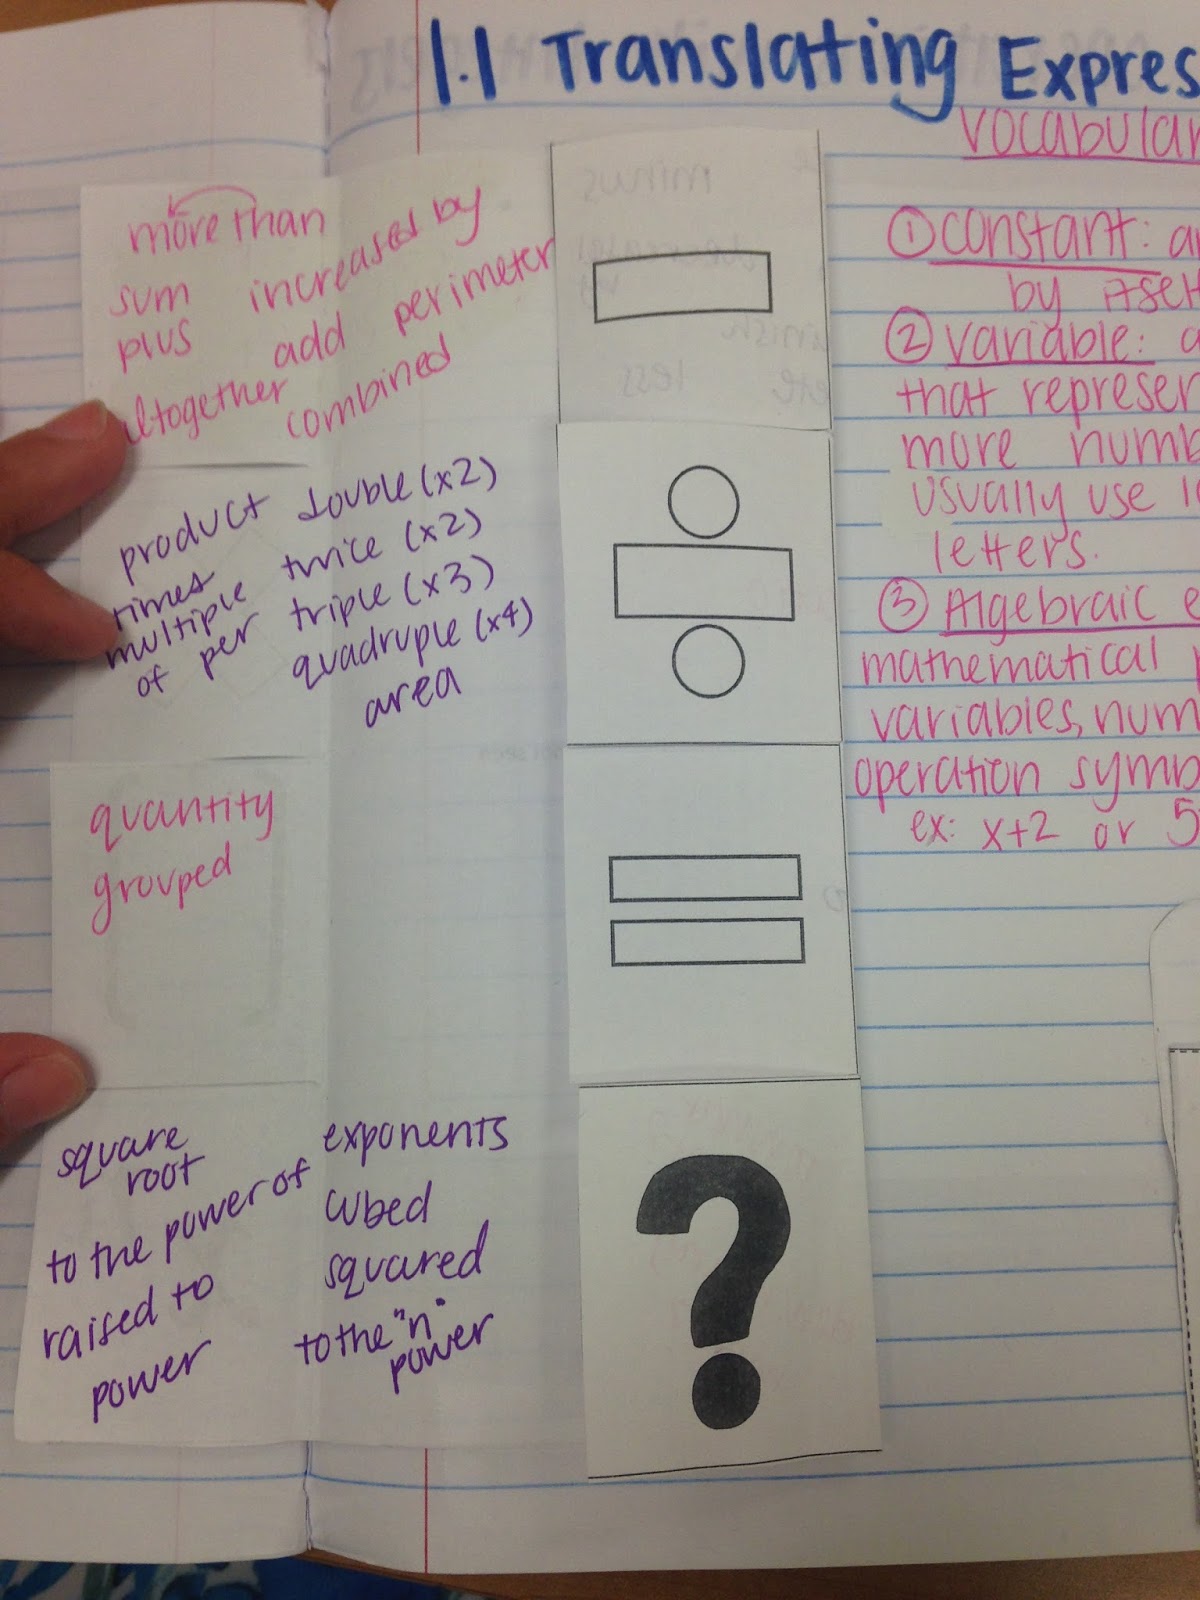 1.1 Translating Expres
vocabular
more than
sum increased by
plus add perimeter
altogether combined
product double (x2)
times twice (x2)
multiple triple (x3)
of per quadruple (x4)
area
quantity
grouped
square
root
to the power of
raised to
power
exponents
cubed
squared
to the "n"
power
minus
less
?
① constant: a
by itself
② variable: a
that represen
more numb
usually use
letters.
③ Algebraic e
mathematical
variables, num
operation symb
ex: x+2 or 5